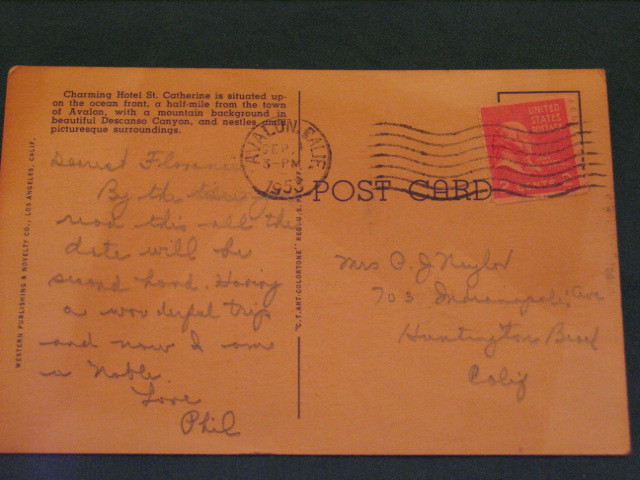 Charming Hotel St. Catherine is situated up-
on the ocean front, a half-mile from the town
of Avalon, with a mountain background in
beautiful Descanso Canyon, and nestles amid
picturesque surroundings.
Dearest Florence
By the time you
read this all the
date will be
second hand. Having
a wonderful trip
and now I am
a Noble.
Love
Phil
WESTERN PUBLISHING & NOVELTY CO., LOS ANGELES, CALIF.
"C.T. ART-COLORTONE" REG. U.S.
AVALON, CALIF.
SEP
3-PM
1953
POST CARD
UNITED
STATES
POSTAGE
Mrs C. J. Naylor
703 Indianapolis Ave
Huntington Beach
Calif